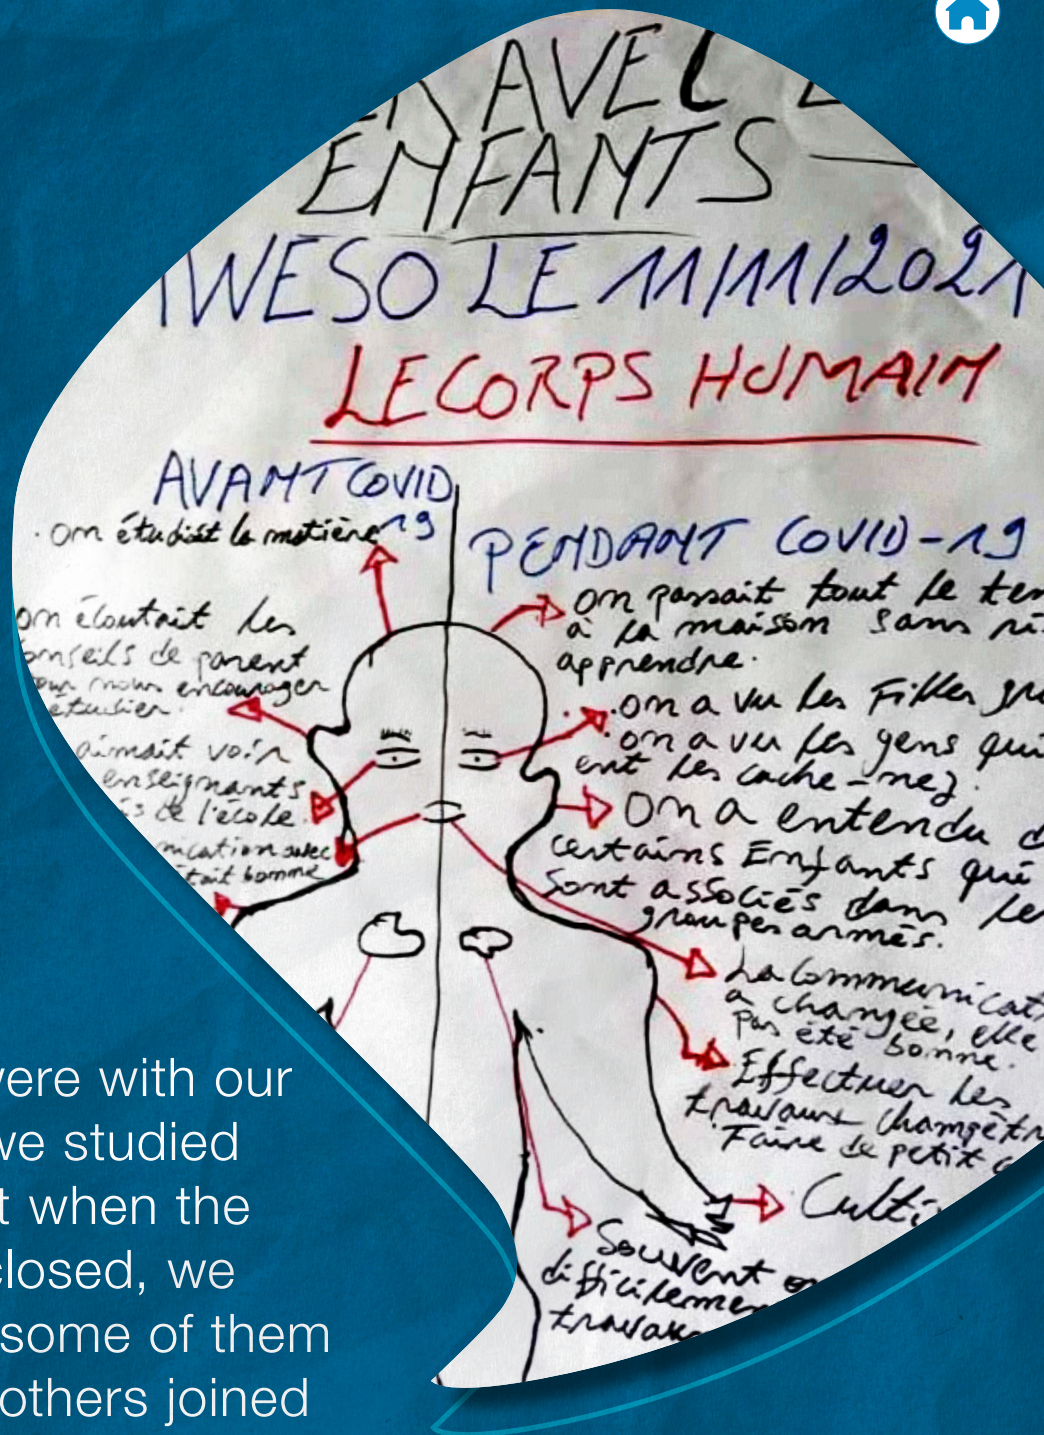 AVEC
ENFANTS
WESO LE 11/11/2021
LE CORPS HUMAIN
AVANT COVID
19
. on étudiait la matière
on écoutait les
conseils de parent
pour nous encourager
étudier.
aimait voir
enseignants
de l'école.
nication avec
était bonne
PENDANT COVID-19
on passait tout le
à la maison sans
apprendre.
. on a vu les filles
. on a vu les gens qui
ent les cache-nez.
on a entendu
certains Enfants qui
sont associés dans
groupes armés.
La Communicat
a changée, elle
pas été bonne.
Effectuer les
travaux champêtr
Faire de petit
Culti
Souvent
difficilemen
travau
were with our
we studied
t when the
closed, we
some of them
others joined